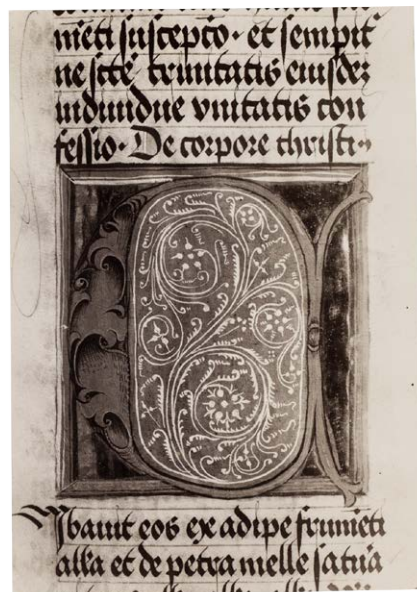 mēti suscepcō · et sempitˀ
ne scte trinitatis eiusdeʒ
indiuidue vnitatis con
fessio · De corpore christi ·
Cibauit eos ex adipe frumēti
all'a et de petra melle satu'a